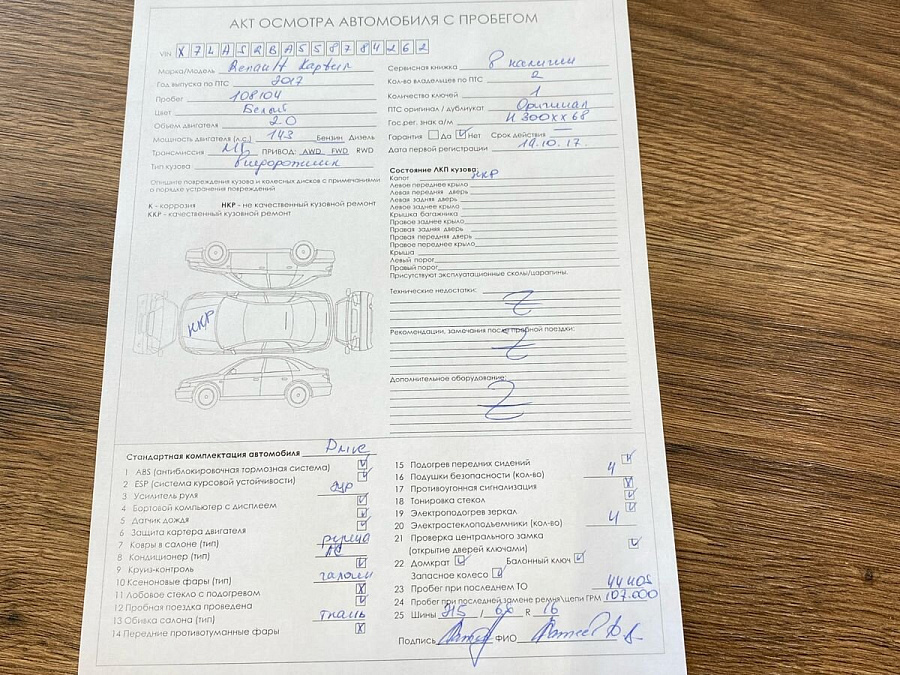 АКТ ОСМОТРА АВТОМОБИЛЯ С ПРОБЕГОМ
VIN X7LASRBA558784262
Марка/Модель Renault Каптюр
Год выпуска по ПТС 2017
Пробег 108104
Цвет Белый
Объем двигателя 2.0
Мощность двигателя (л.с.) 143 Бензин Дизель
Трансмиссия ПРИВОД: AWD FWD RWD
Тип кузова Внедорожник
Опишите повреждения кузова и колесных дисков с примечаниями
о порядке устранения повреждений
К - коррозия НКР - не качественный кузовной ремонт
ККР - качественный кузовной ремонт
ККР
Сервисная книжка В наличии
Кол-во владельцев по ПТС 2
Количество ключей 1
ПТС оригинал / дубликат Оригинал
Гос.рег. знак а/м Н300ХХ68
Гарантия Да Нет Срок действия —
Дата первой регистрации 19.10.17.
Состояние ЛКП кузова
Капот ККР
Левое переднее крыло
Левая передняя дверь
Левая задняя дверь
Левое заднее крыло
Крышка багажника
Правое заднее крыло
Правая задняя дверь
Правая передняя дверь
Правое переднее крыло
Крыша
Левый порог
Правый порог
Присутствуют эксплуатационные сколы/царапины.
Технические недостатки:
Z
Рекомендации, замечания после пробной поездки:
Z
Дополнительное оборудование:
Z
Стандартная комплектация автомобиля Drive
1 ABS (антиблокировочная тормозная система)
2 ESP (система курсовой устойчивости)
3 Усилитель руля ЭУР
4 Бортовой компьютер с дисплеем
5 Датчик дождя
6 Защита картера двигателя
7 Ковры в салоне (тип) резина
8 Кондиционер (тип) АС
9 Круиз-контроль
10 Ксеноновые фары (тип) галоген
11 Лобовое стекло с подогревом
12 Пробная поездка проведена
13 Обивка салона (тип) ткань
14 Передние противотуманные фары
15 Подогрев передних сидений
16 Подушки безопасности (кол-во) 4
17 Противоугонная сигнализация
18 Тонировка стекол
19 Электроподогрев зеркал
20 Электростеклоподъемники (кол-во) 4
21 Проверка центрального замка
(открытие дверей ключами)
22 Домкрат Балонный ключ
Запасное колесо
23 Пробег при последнем ТО
24 Пробег при последней замене ремня\цепи ГРМ 107.000
25 Шины 215 / 60 R 16
Подпись ФИО